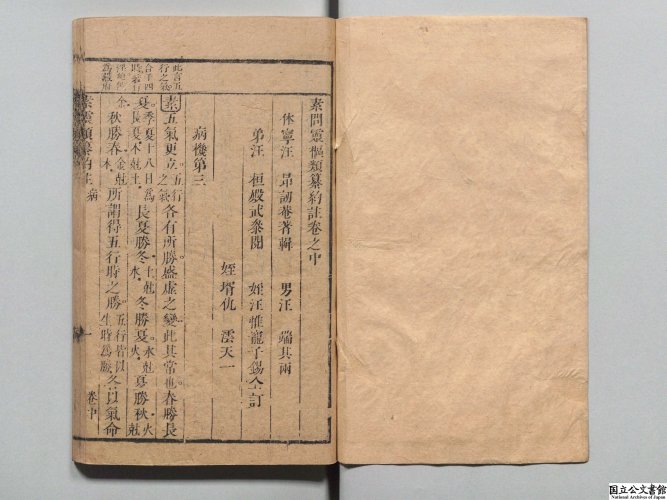 素問靈樞類纂約註卷之中
休寧汪 昂訒菴著輯 男汪 端其兩
弟汪 桓殿武叅閱 姪汪惟寵子錫仝訂
姪壻仇 澐天一
病機第三
素五氣更立五行之氣各有所勝盛虛之變此其常也春勝長
夏季夏十八日為長夏木尅土長夏勝冬土尅水冬勝夏水尅火夏勝秋火尅
金秋勝春金尅木所謂得五行時之勝五行皆以生時為勝各以氣命
此言五
行之氣
合于四
素靈類纂約註 病 一 卷中
国立公文書館
National Archives of Japan